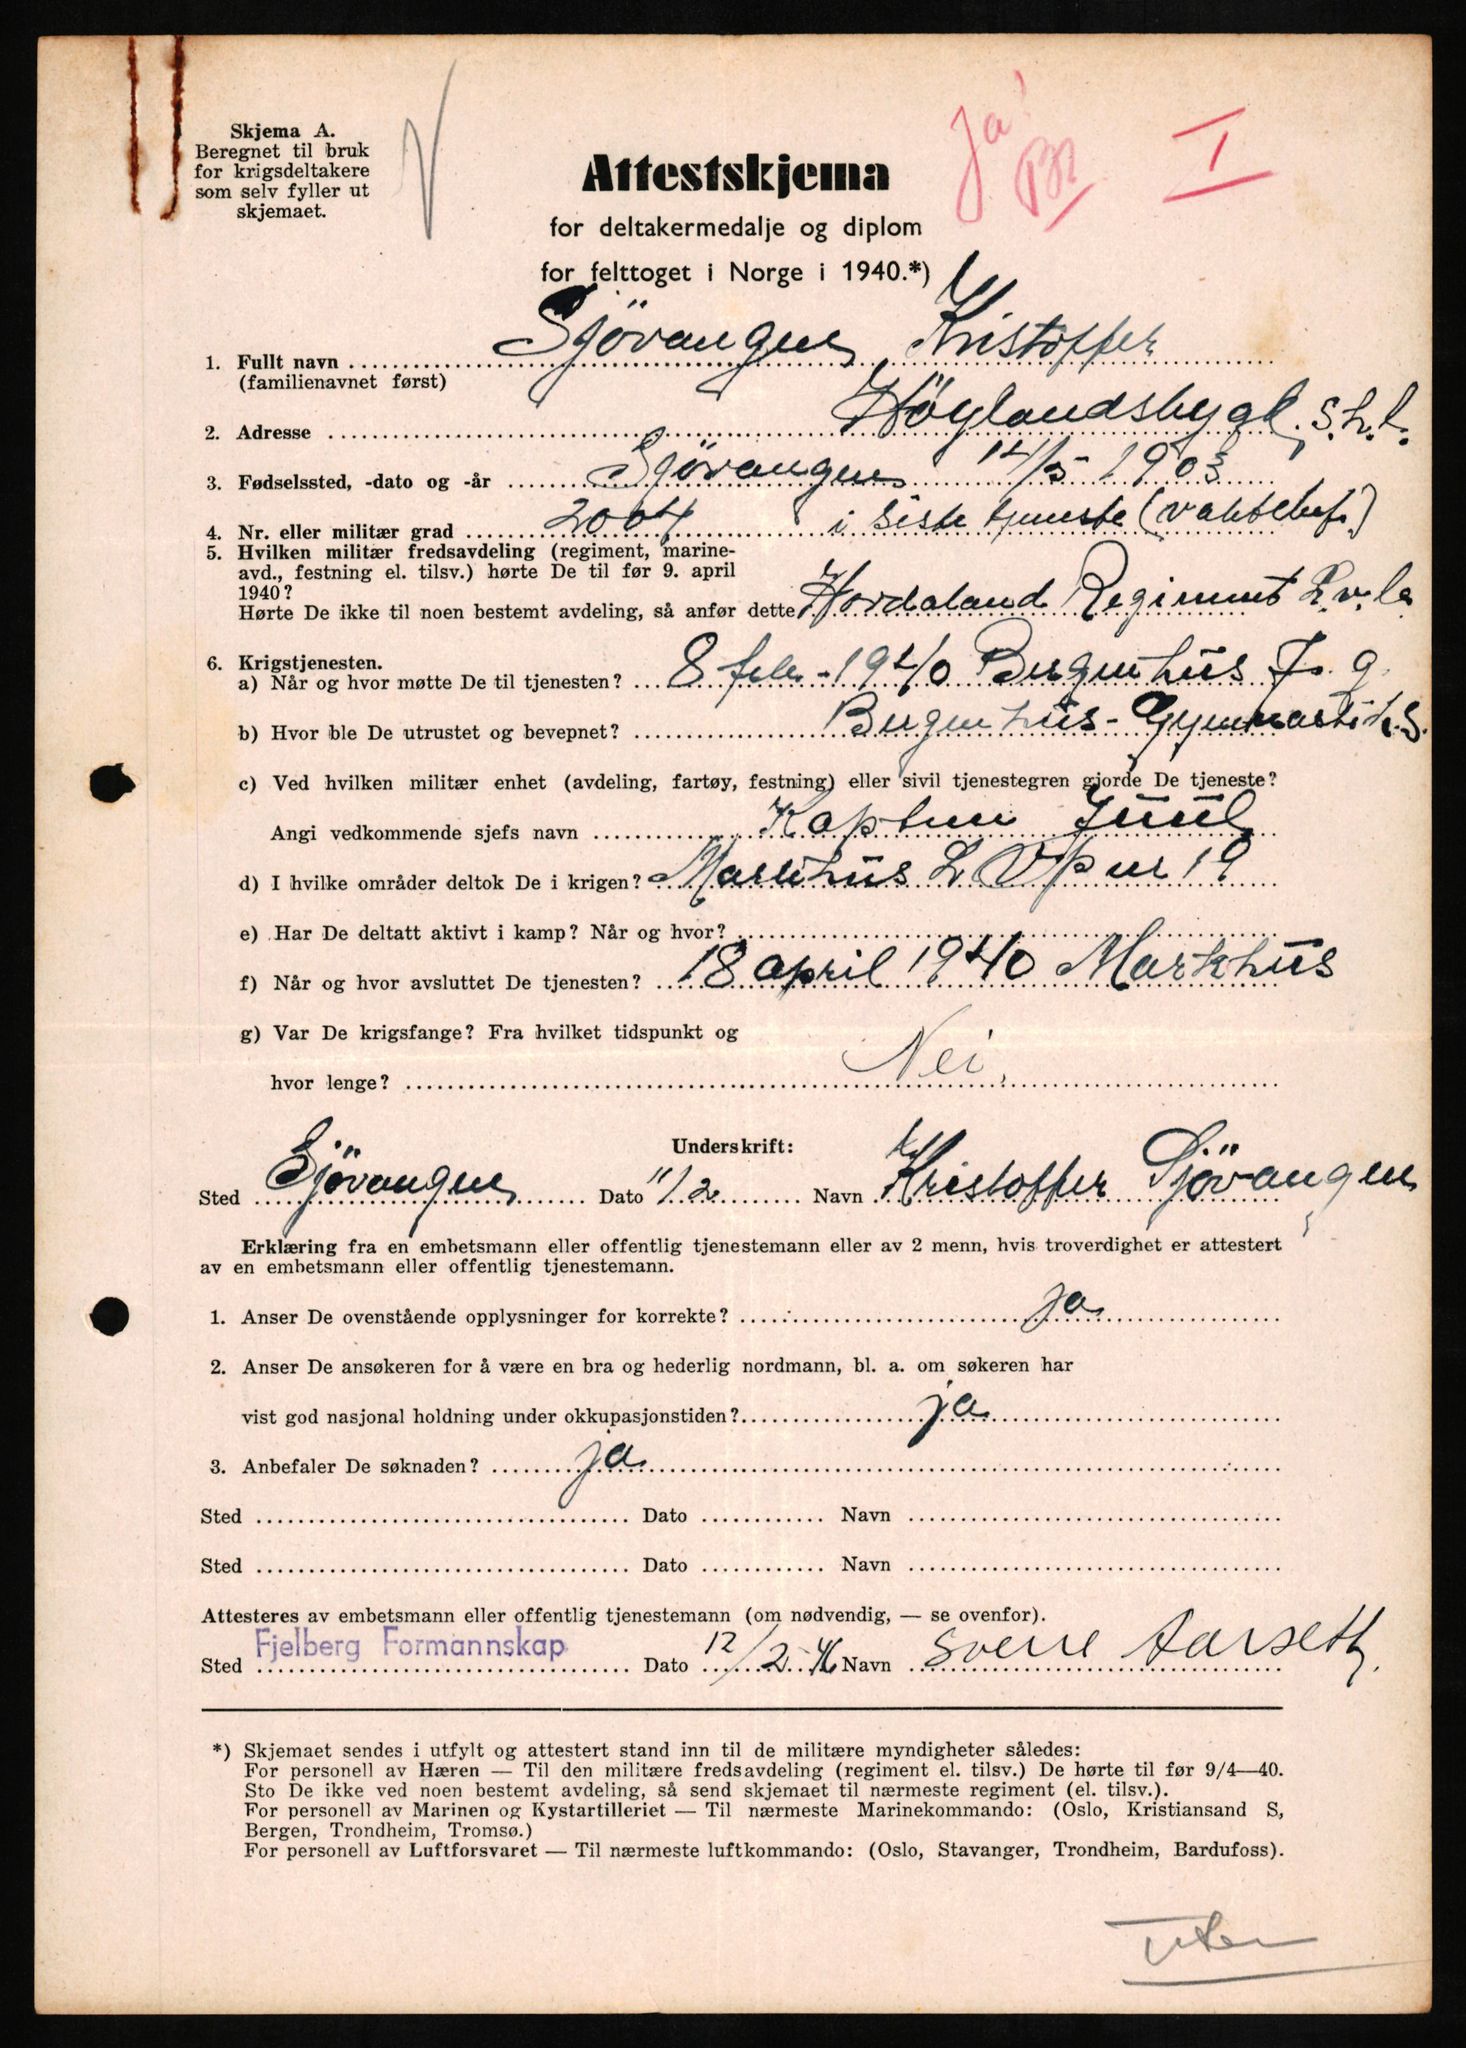 Skjema A.
Beregnet til bruk
for krigsdeltakere
som selv fyller ut
skjemaet.
Ja!
I
Attestskjema
for deltakermedalje og diplom
for felttoget i Norge i 1940.*)
1. Fullt navn Sjövangen Kristoffer
(familienavnet først)
2. Adresse Höylandsbygd. S.h.l.
3. Fødselssted, -dato og -år Sjövangen 14/5 1903
4. Nr. eller militær grad 2004 i siste tjeneste (vaktbef.)
5. Hvilken militær fredsavdeling (regiment, marine-
avd., festning el. tilsv.) hørte De til før 9. april
1940?
Hørte De ikke til noen bestemt avdeling, så anfør dette Hordaland Regiment L.v.k.
6. Krigstjenesten.
a) Når og hvor møtte De til tjenesten? 8 feb - 1940 Bergenhus F. g.
b) Hvor ble De utrustet og bevepnet? Bergenhus - Gymnastik.S.
c) Ved hvilken militær enhet (avdeling, fartøy, festning) eller sivil tjenestegren gjorde De tjeneste?
Angi vedkommende sjefs navn Kaptein Juul
d) I hvilke områder deltok De i krigen? Markhus L 19
e) Har De deltatt aktivt i kamp? Når og hvor?
f) Når og hvor avsluttet De tjenesten? 18 april 1940 Markhus
g) Var De krigsfange? Fra hvilket tidspunkt og
hvor lenge? Nei.
Underskrift:
Sted Sjövangen Dato 11/2 Navn Kristoffer Sjövangen
Erklæring fra en embetsmann eller offentlig tjenestemann eller av 2 menn, hvis troverdighet er attestert
av en embetsmann eller offentlig tjenestemann.
1. Anser De ovenstående opplysninger for korrekte? ja
2. Anser De ansøkeren for å være en bra og hederlig nordmann, bl. a. om søkeren har
vist god nasjonal holdning under okkupasjonstiden? ja
3. Anbefaler De søknaden? ja
Sted Dato Navn
Sted Dato Navn
Attesteres av embetsmann eller offentlig tjenestemann (om nødvendig, — se ovenfor).
Sted Fjelberg Formannskap Dato 12/2-46 Navn Sverre Aarseth.
*) Skjemaet sendes i utfylt og attestert stand inn til de militære myndigheter således:
For personell av Hæren — Til den militære fredsavdeling (regiment el. tilsv.) De hørte til før 9/4—40.
Sto De ikke ved noen bestemt avdeling, så send skjemaet til nærmeste regiment (el. tilsv.).
For personell av Marinen og Kystartilleriet — Til nærmeste Marinekommando: (Oslo, Kristiansand S,
Bergen, Trondheim, Tromsø.)
For personell av Luftforsvaret — Til nærmeste luftkommando: (Oslo, Stavanger, Trondheim, Bardufoss).